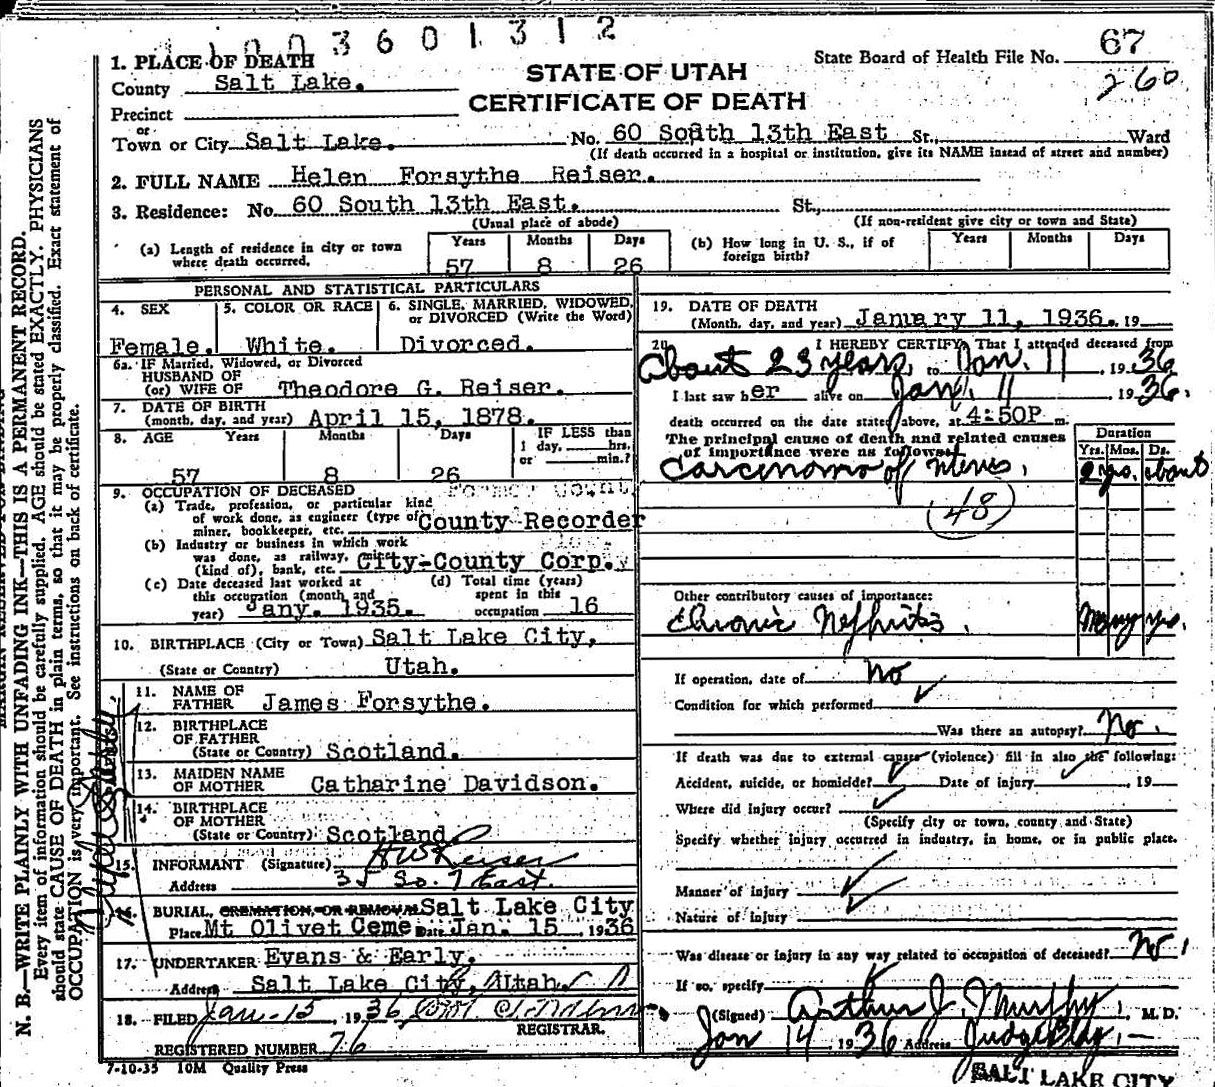 003601312
1. PLACE OF DEATH
County Salt Lake.
Precinct
or
Town or City Salt Lake.
STATE OF UTAH
CERTIFICATE OF DEATH
State Board of Health File No. 67
260
No. 60 South 13th East St., Ward
(If death occurred in a hospital or institution, give its NAME instead of street and number)
2. FULL NAME Helen Forsythe Reiser.
3. Residence: No. 60 South 13th East. St.,
(Usual place of abode) (If non-resident give city or town and State)
(a) Length of residence in city or town where death occurred. Years 57 Months 8 Days 26
(b) How long in U. S., if of foreign birth? Years Months Days
PERSONAL AND STATISTICAL PARTICULARS
4. SEX Female.
5. COLOR OR RACE White.
6. SINGLE, MARRIED, WIDOWED, or DIVORCED (Write the Word) Divorced.
6a. IF Married, Widowed, or Divorced
HUSBAND OF
(or) WIFE OF Theodore G. Reiser.
7. DATE OF BIRTH
(month, day, and year) April 15, 1878.
8. AGE Years 57 Months 8 Days 26
IF LESS than
1 day, hrs.
or min.?
9. OCCUPATION OF DECEASED Former Count
(a) Trade, profession, or particular kind
of work done, as engineer (type of
miner, bookkeeper, etc. County Recorder
(b) Industry or business in which work
was done, as railway, mine
(kind of), bank, etc. City-County Corp.
(c) Date deceased last worked at
this occupation (month and
year) Jany. 1935.
(d) Total time (years)
spent in this
occupation 16
10. BIRTHPLACE (City or Town) Salt Lake City,
(State or Country) Utah.
11. NAME OF
FATHER James Forsythe.
12. BIRTHPLACE
OF FATHER
(State or Country) Scotland.
13. MAIDEN NAME
OF MOTHER Catharine Davidson.
14. BIRTHPLACE
OF MOTHER
(State or Country) Scotland
15. INFORMANT (Signature) HW Reiser
Address 35 So. 7 East.
16. BURIAL, CREMATION, OR REMOVAL Salt Lake City
Place Mt Olivet Ceme Date Jan. 15 1936
17. UNDERTAKER Evans & Early.
Address Salt Lake City, Utah.
18. FILED Jan-15, 1936,
REGISTRAR.
REGISTERED NUMBER 76
7-10-35 10M Quality Press
19. DATE OF DEATH
(Month, day, and year) January 11, 1936. 19
20. I HEREBY CERTIFY, That I attended deceased from
About 23 years, to Jan. 11, 1936
I last saw her alive on Jan. 11 1936.
death occurred on the date stated above, at 4:50P m.
The principal cause of death and related causes
of importance were as follows:
Duration
Yrs. Mos. Ds.
Carcinoma of uterus. 2 yrs. about
(48)
Other contributory causes of importance:
Chronic Nephritis. Many yrs.
If operation, date of No
Condition for which performed
Was there an autopsy? No.
If death was due to external causes (violence) fill in also the following:
Accident, suicide, or homicide? Date of injury , 19
Where did injury occur?
(Specify city or town, county and State)
Specify whether injury occurred in industry, in home, or in public place.
Manner of injury
Nature of injury
Was disease or injury in any way related to occupation of deceased? No.
If so, specify
(Signed) Arthur J. Murphy, M. D.
Jan 14 1936 Address Judge Bldg.
SALT LAKE CITY
MARGIN RESERVED FOR BINDING
N. B.—WRITE PLAINLY WITH UNFADING INK—THIS IS A PERMANENT RECORD.
Every item of information should be carefully supplied. AGE should be stated EXACTLY. PHYSICIANS
should state CAUSE OF DEATH in plain terms, so that it may be properly classified. Exact statement of
OCCUPATION is very important. See instructions on back of certificate.